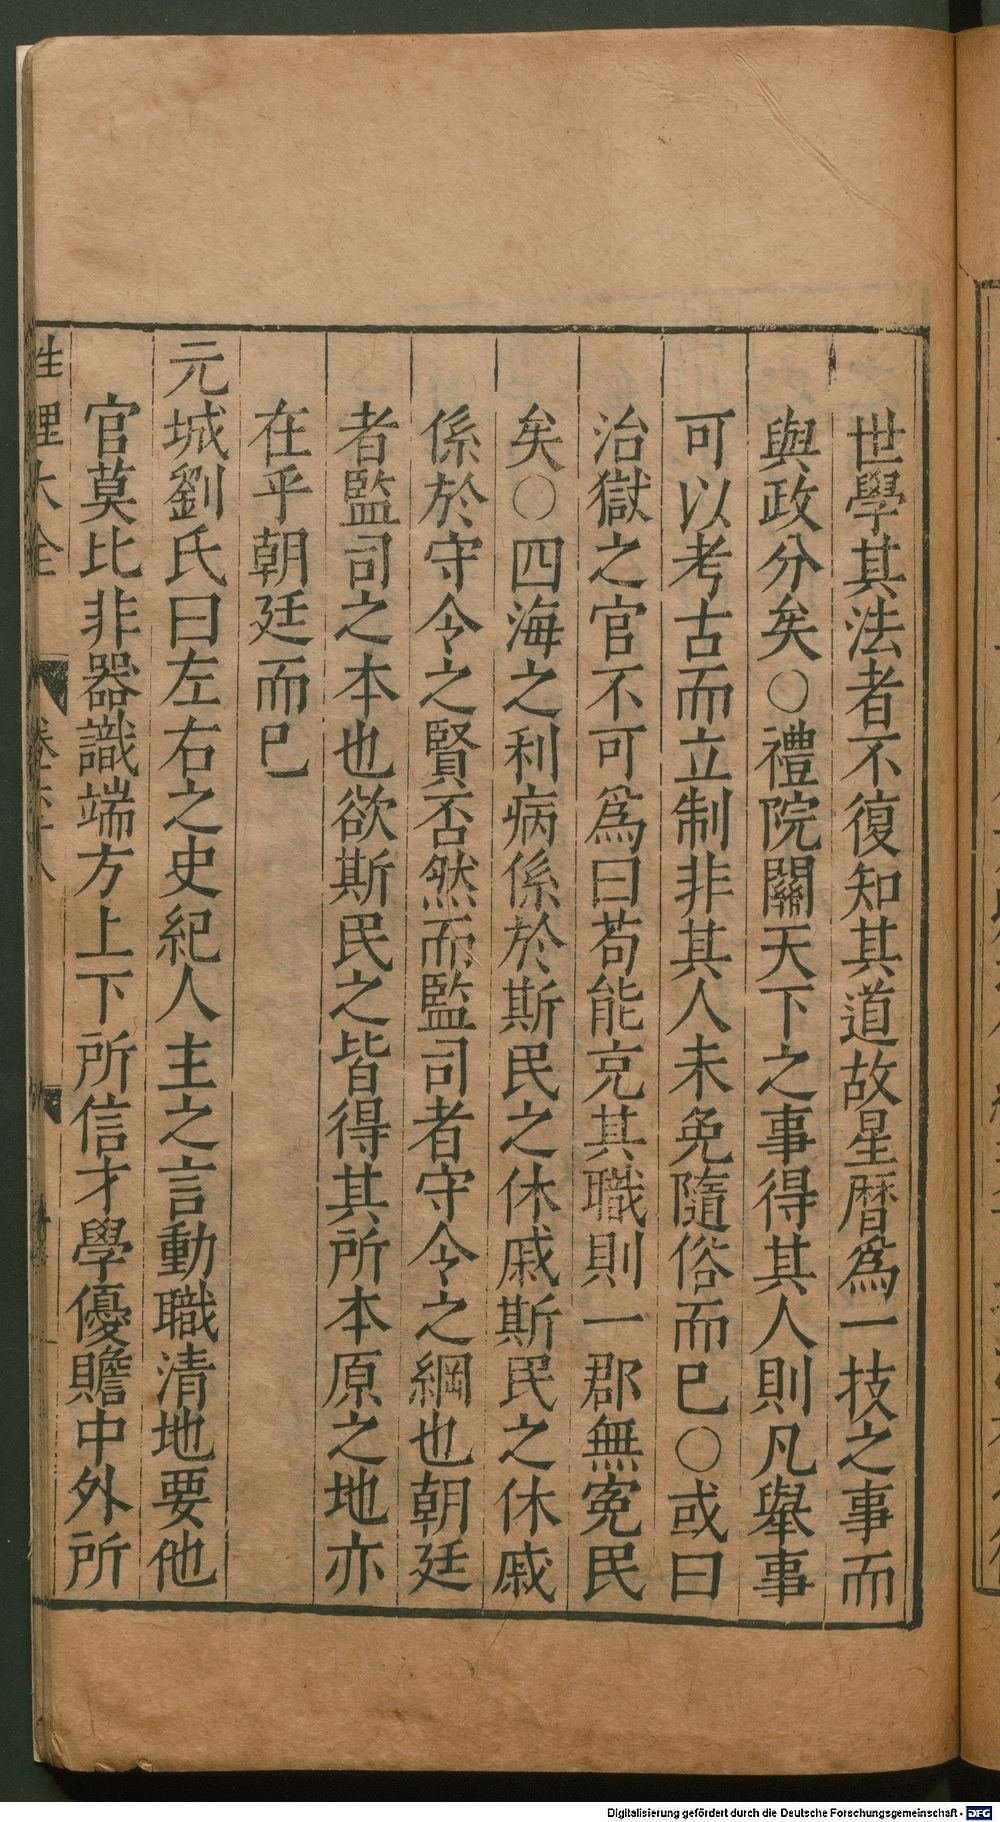 世學其法者不復知其道故星曆爲一技之事而
與政分矣○禮院關天下之事得其人則凡舉事
可以考古而立制非其人未免隨俗而已○或曰
治獄之官不可爲曰苟能充其職則一郡無寃民
矣○四海之利病係於斯民之休戚斯民之休戚
係於守令之賢否然而監司者守令之綱也朝廷
者監司之本也欲斯民之皆得其所本原之地亦
在乎朝廷而已
元城劉氏曰左右之史紀人主之言動職清地要他
官莫比非器識端方上下所信才學優贍中外所
性理大全 卷六十八
Digitalisierung gefördert durch die Deutsche Forschungsgemeinschaft - DFG